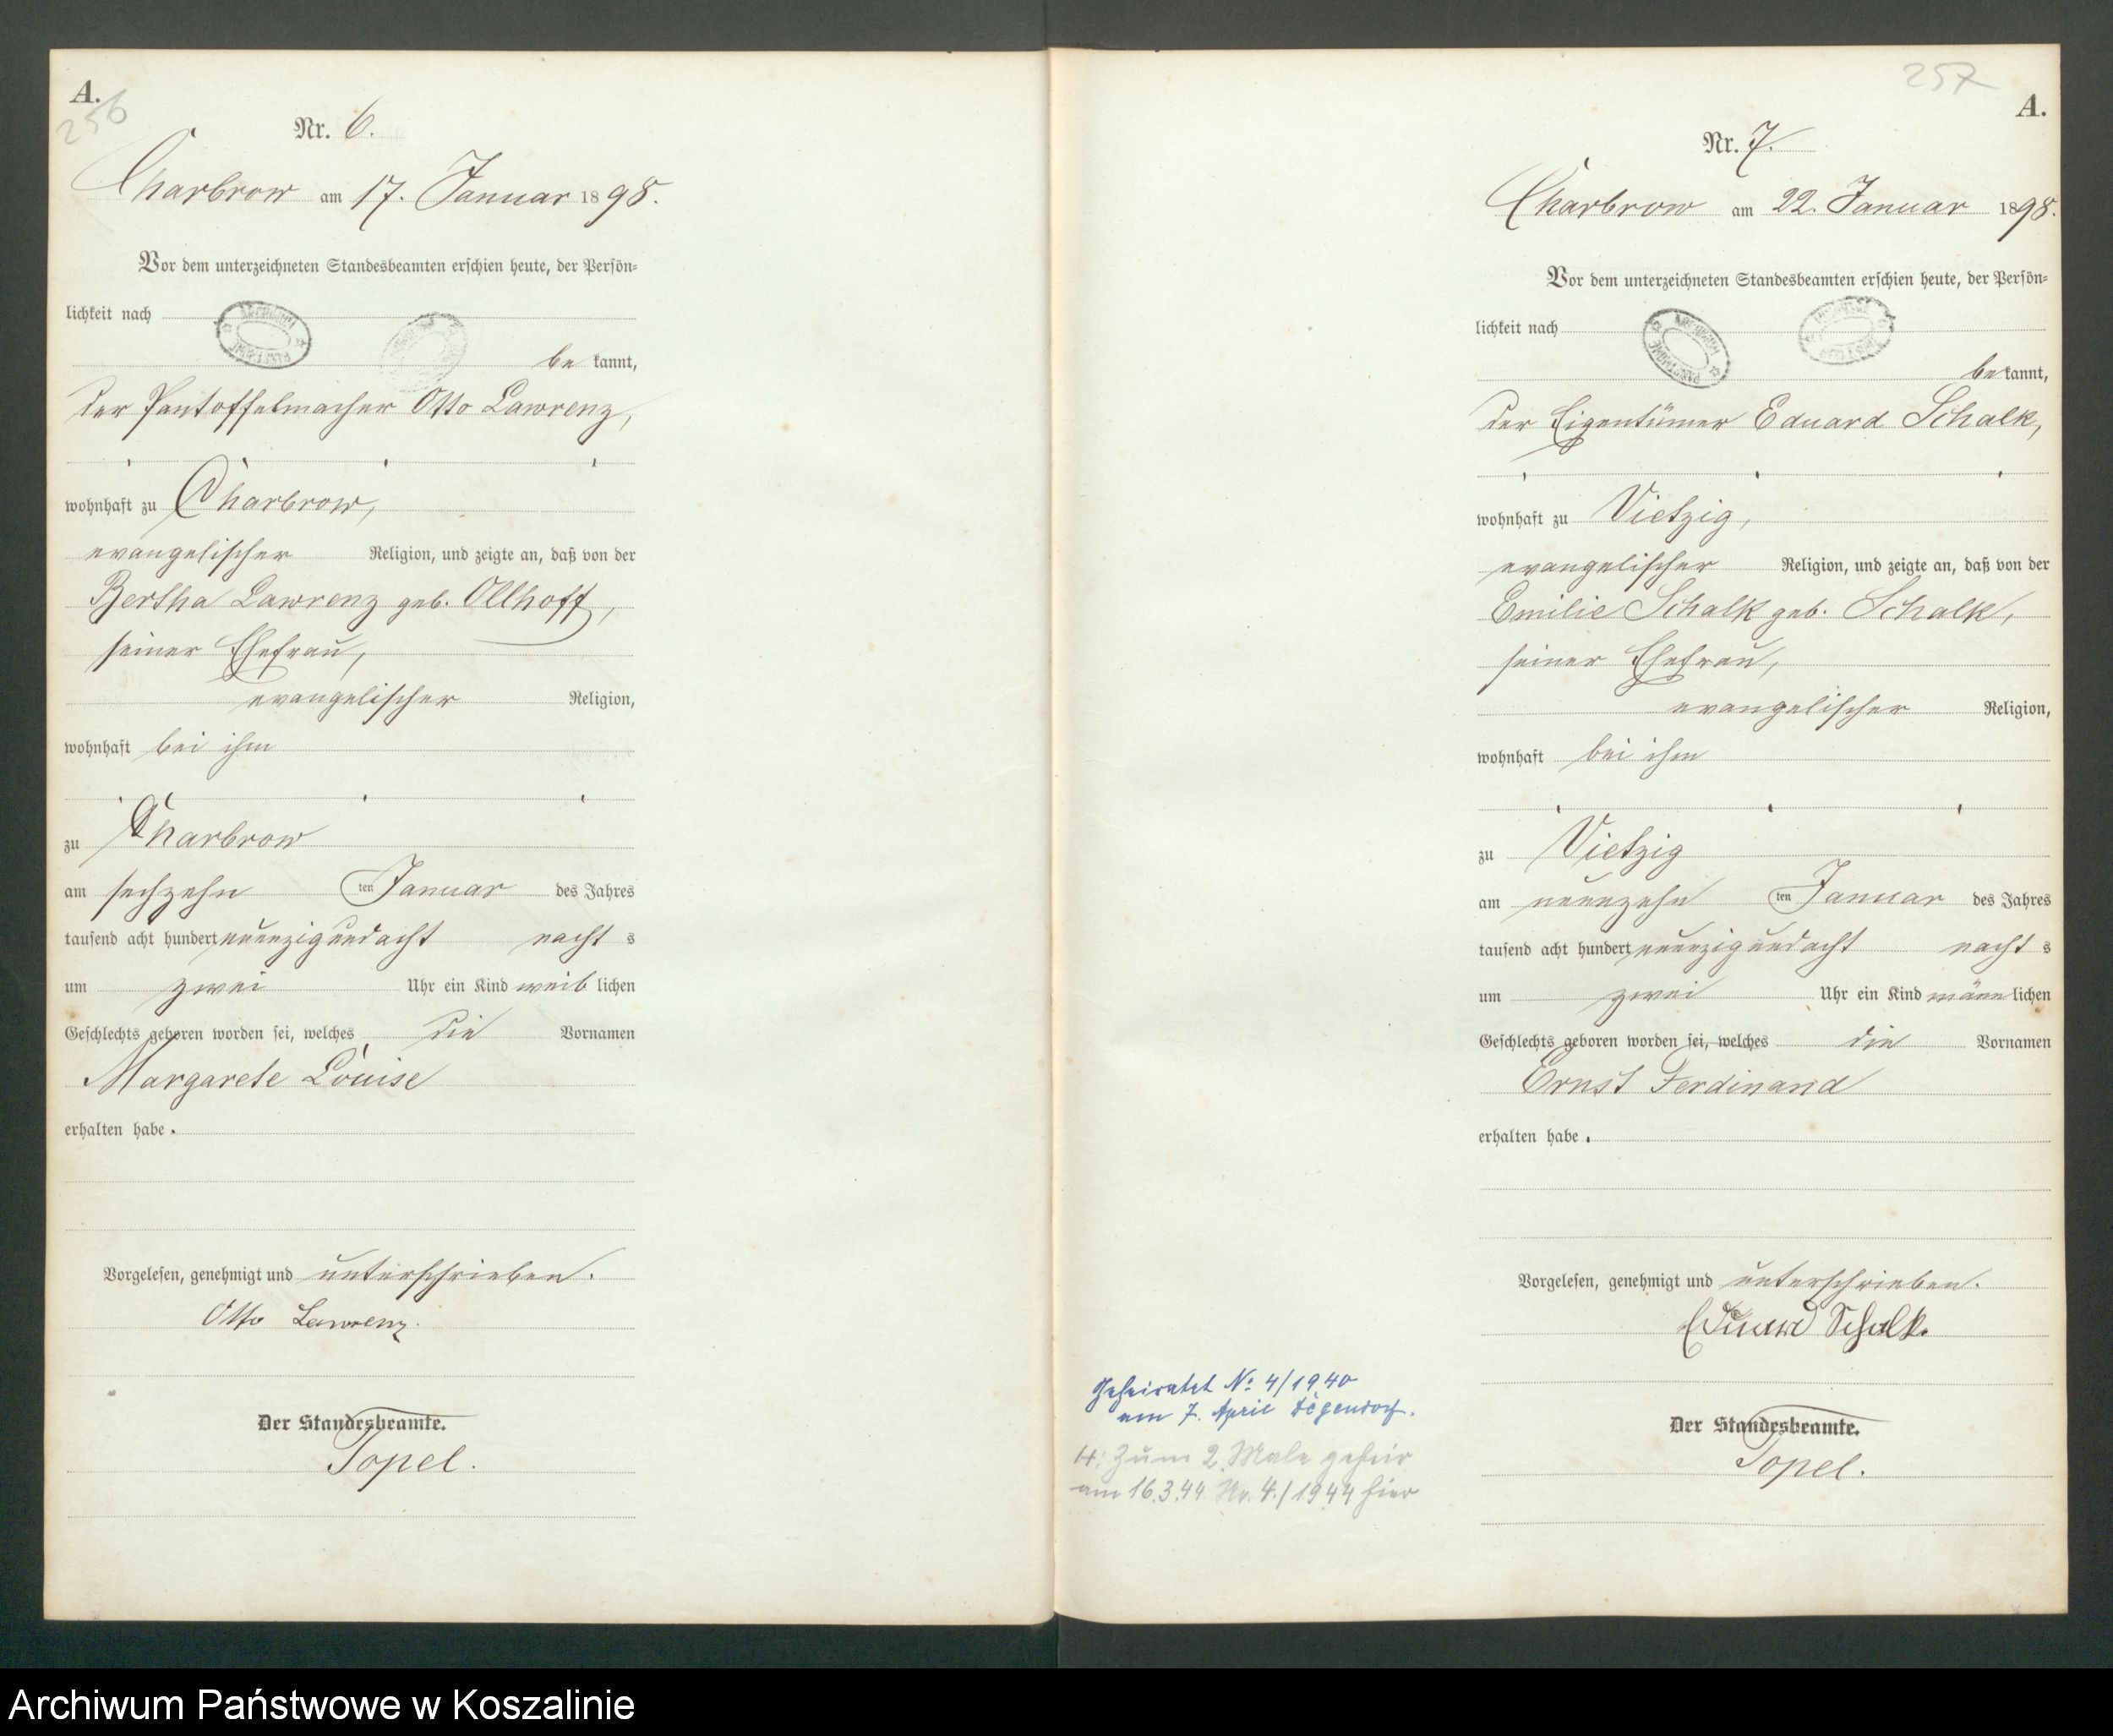 A.
256
Nr. 6.
Charbrow am 17. Januar 1898.
Vor dem unterzeichneten Standesbeamten erschien heute, der Persön-
lichkeit nach
be kannt,
der Pantoffelmacher Otto Lawrenz,
wohnhaft zu Charbrow,
evangelischer Religion, und zeigte an, daß von der
Bertha Lawrenz geb. Ollhoff,
seiner Ehefrau,
evangelischer Religion,
wohnhaft bei ihm
zu Charbrow
am sechzehn ten Januar des Jahres
tausend acht hundert neunzig und acht nacht s
um zwei Uhr ein Kind weib lichen
Geschlechts geboren worden sei, welches die Vornamen
Margarete Louise
erhalten habe.
Vorgelesen, genehmigt und unterschrieben.
Otto Lawrenz.
Der Standesbeamte.
Topel.
257
A.
Nr. 7.
Charbrow am 22. Januar 1898.
Vor dem unterzeichneten Standesbeamten erschien heute, der Persön-
lichkeit nach
be kannt,
der Eigentümer Eduard Schalk,
wohnhaft zu Vietzig,
evangelischer Religion, und zeigte an, daß von der
Emilie Schalk geb. Schalk,
seiner Ehefrau,
evangelischer Religion,
wohnhaft bei ihm
zu Vietzig
am neunzehn ten Januar des Jahres
tausend acht hundert neunzig und acht nacht s
um zwei Uhr ein Kind männ lichen
Geschlechts geboren worden sei, welches die Vornamen
Ernst Ferdinand
erhalten habe.
Vorgelesen, genehmigt und unterschrieben.
Eduard Schalk.
Der Standesbeamte.
Topel.
Geheiratet No 4/1940
am 7. April
Zum 2. Male geheir
am 16.3.44 Nr. 4./1944 hier
Archiwum Państwowe w Koszalinie